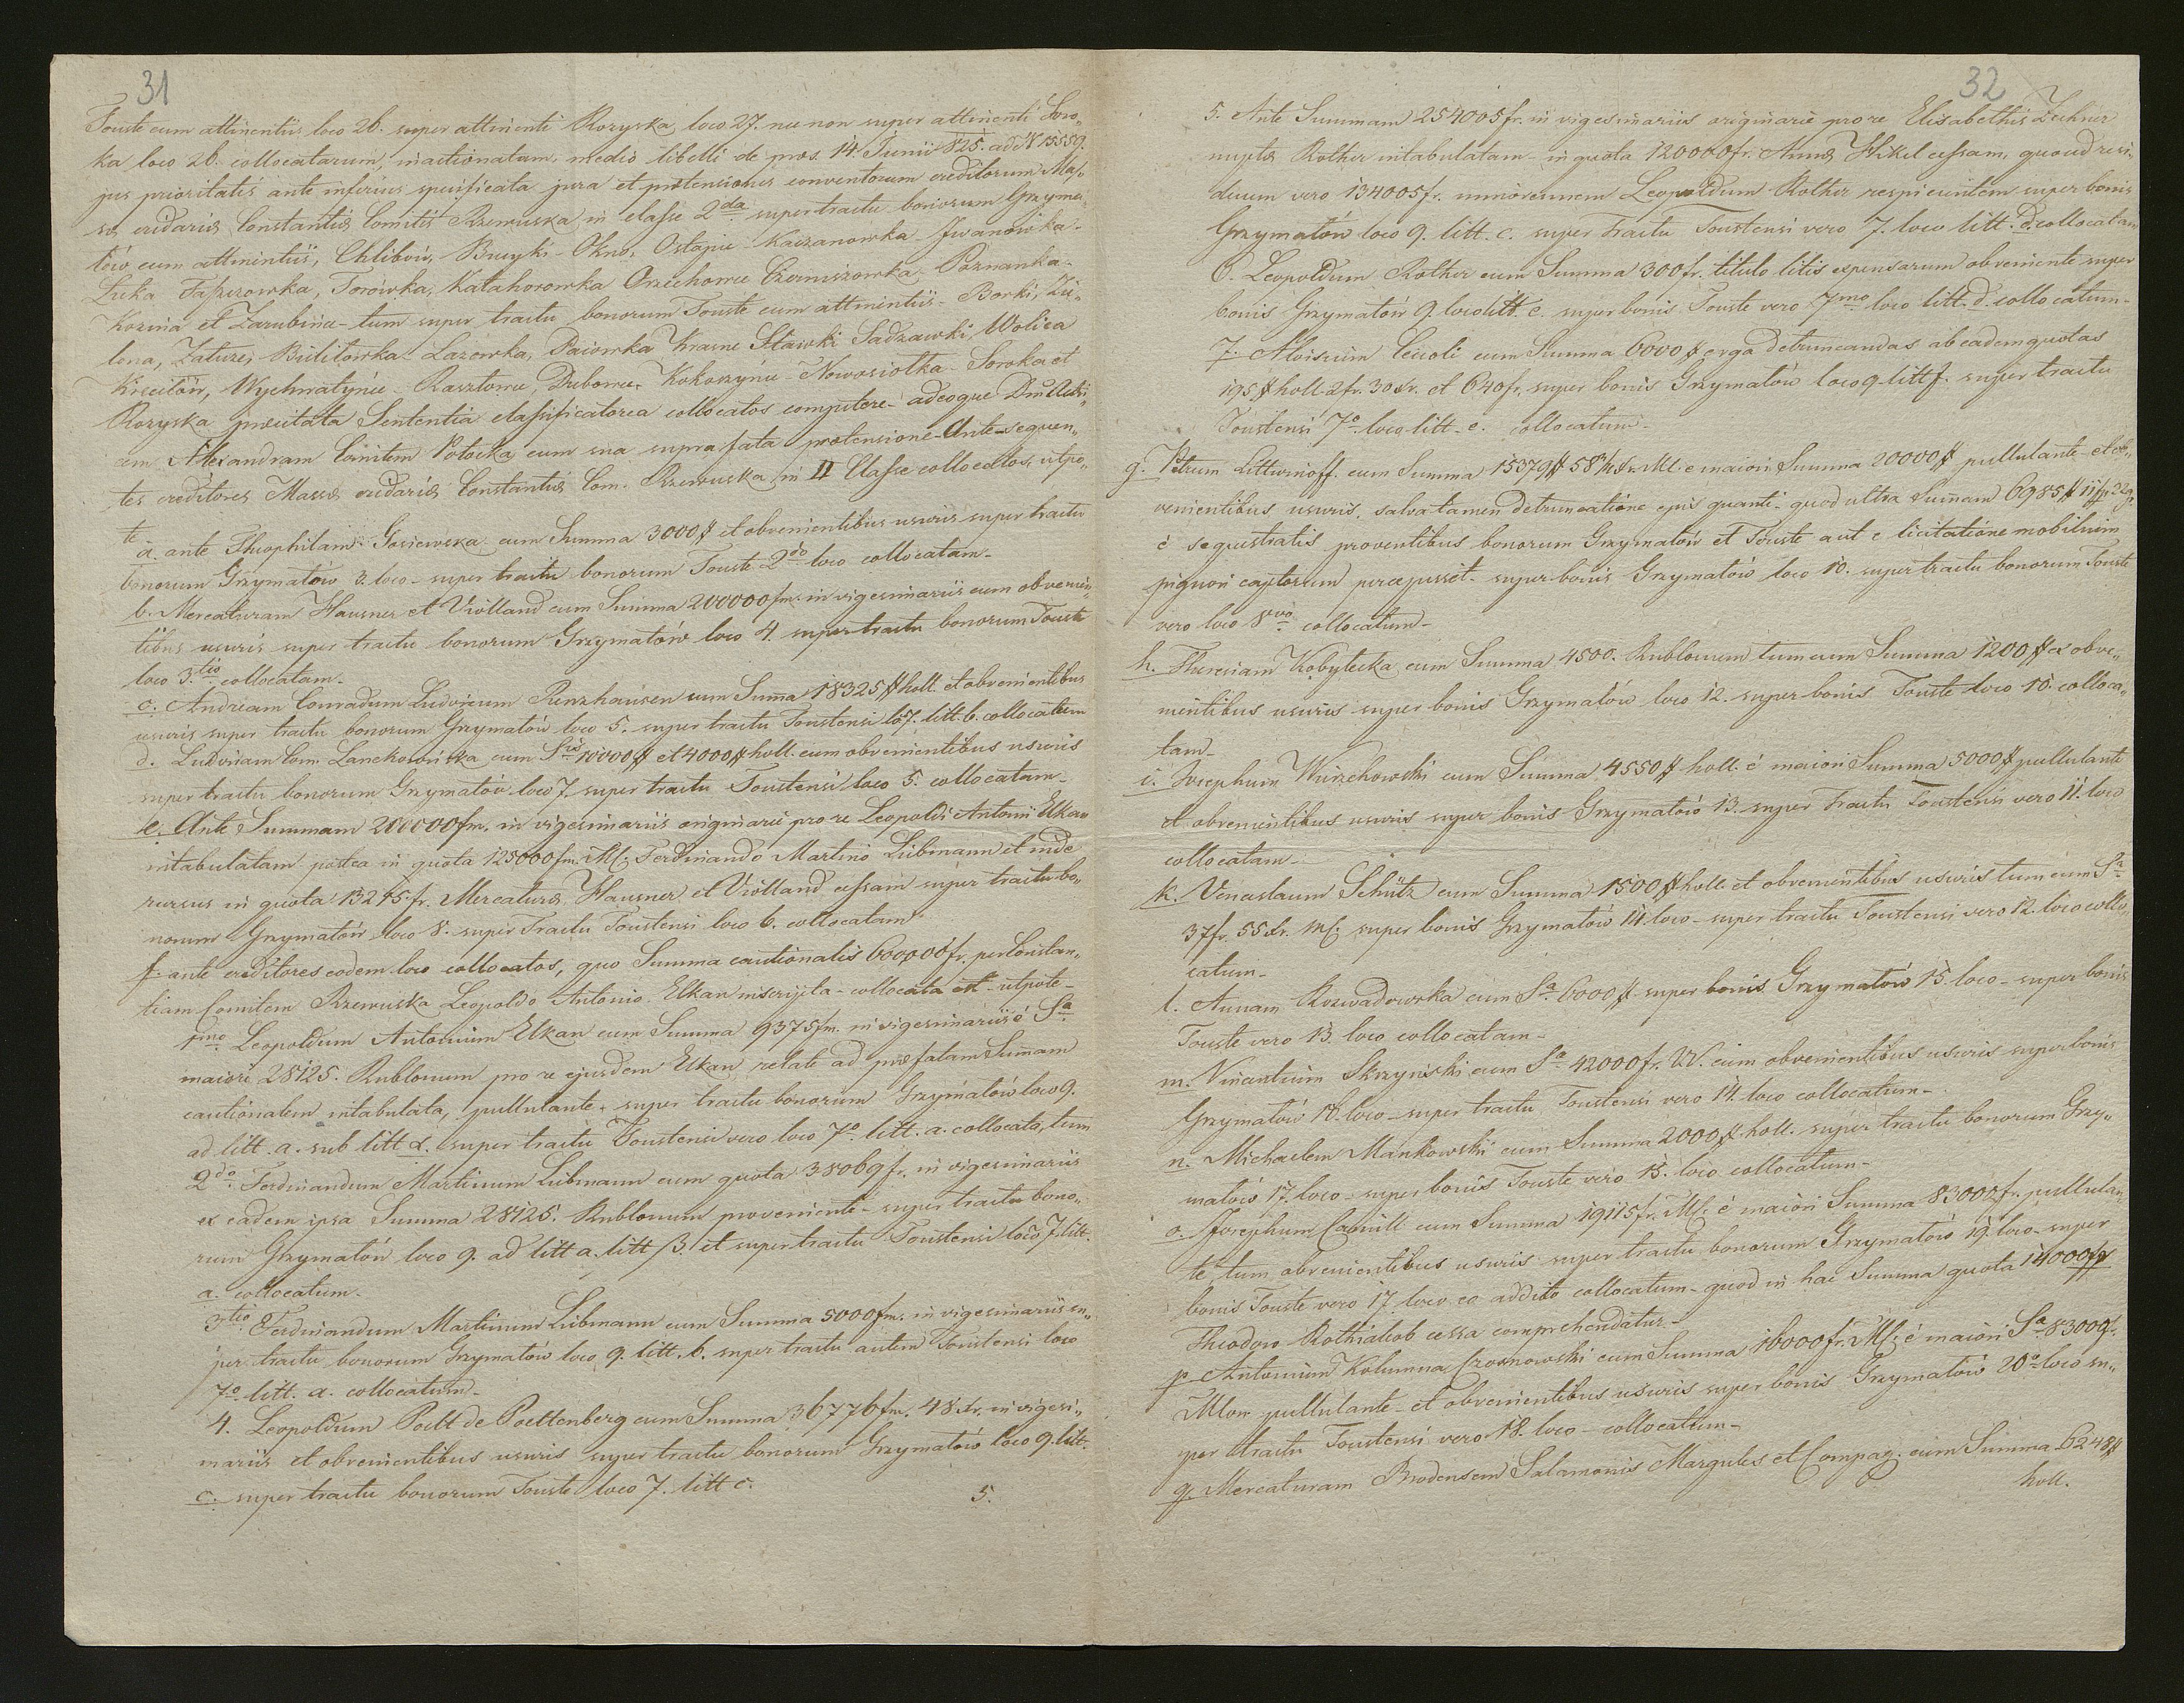 31
Touste cum attinentiis loco 26. super attinenti Rozyska loco 27. nec non super attinenti Soro„
ka loco 26. collocatarum, inactionatam, medio libelli de praes. 14. Junii 825. ad N 15559.
jus prioritatis ante inferius specificata jura et praetensiones conventorum creditorum Mas„
sae cridariae Constantiae Comitis Rzewuska in classe 2da super tractu bonorum Grzyma„
łów cum attinentiis, Chlibów, Bucyki - Okno, Ostapie - Kaczanowka - Jwanówka -
Łuka Faszczowka, Torówka, Katahorowka Orzechowce Czerniszowka - Poznanka -
Kozina et Zarubince - tum super tractu bonorum Touste cum attinentiis - Borki, Zie„
lona, Zaturze, Bielitowka - Lazowka, Paiowka Krasne Stawki Sadzawki, Wolica
Kociłów, Wychwatynce - Rasztowce, Dubowce, Kokoszynce - Nowosiolka - Soroka et
Rozyska praecitata Sententia classificatorea collocatos competere - adeoque Dm Actri„
cem Alexandram Comitem Potocka cum sua suprafata praetensione - Ante - sequen„
tes creditores Massae cridariae Constantiae Com. Rzewuska in II Classe collocatos, utpo„
te
a. ante Theophilam Gosiewska cum Summa 3000 # et obvenientibus usuris super tractu
bonorum Grzymałów 3. loco - super tractu bonorum Touste 2do loco collocatam -
b. Mercaturam Hausner et Violland cum Summa 200000 fm. in vigesimariis cum obvenien„
tibus usuris super tractu bonorum Grzymałów loco 4. super tractu bonorum Touste
loco 3.tio collocatam -
c. Andream Conradum Ludovicum Penzhausen cum Summa 18325 # holl. et obvenientibus
usuris super tractu bonorum Grzymałów loco 5. super tractu Toustensi lo 7. litt. b. collocatum
d. Ludovicam Com. Lanckorońska cum Sis 10000 # et 4000 # holl. cum obvenientibus usuris
super tractu bonorum Grzymałów loco 7. super tractu Toustensi loco 5. collocatam -
e. Ante Summam 200000 fm. in vigesimariis originarie pro re Leopoldi Antonii Elkan
intabulatam postea in quota 125000 fm. M. Ferdinando Martino Liebmann et inde
rursus in quota 13245 fr. Mercaturae Hausner et Violland cessam super tractu bo„
norum Grzymałów loco 8. super Tractu Toustensi loco 6. collocatam
f. ante creditores eodem loco collocatos, quo Summa cautionalis 600,000 fr. per Constan„
tiam Comitem Rzewuska Leopoldo Antonio Elkan inscripta - collocata est - utpote -
1mo Leopoldum Antonium Elkan cum Summa 9375 fm. in vigesimariis é Sa
maiori 28125. Rublonum pro re ejusdem Elkan relate ad praefatam Summam
cautionalem intabulata, pullulante, super tractu bonorum Grzymałów loco 9.
ad litt. a. sub litt α. super tractu Toustensi vero loco 7o. litt. a. collocato, tum
2do. Ferdinandum Martinum Liebmann cum quota 38069 fr. in vigesimariis
ex eadem ipsa Summa 28125. Rublonum proveniente - super tractu bono„
rum Grzymałów loco 9. ad litt a. litt β. et super tractu Toustensi loco 7. litt.
a. collocatum -
3tio Ferdinandum Martinum Liebmann cum Summa 5000 fm. in vigesimariis su„
per tractu bonorum Grzymałów loco 9. litt. b. super tractu autem Toustensi loco
7o litt. a. collocatum -
4. Leopoldum Poelt de Poeltenberg cum Summa 36776 fm. 48 xr. in vigesi„
mariis et obvenientibus usuris super tractu bonorum Grzymałów loco 9. litt.
c. super tractu bonorum Touste loco 7. litt c.
5.
32
5. Ante Summam 254005 fr. in vigesimariis originarie pro re Elisabethis Lechner
nuptae Rother intabulatam - in quota 120000 fr. Annae Wikel cessam, quoad resi„
duum vero 134005 fr. minorennem Leopoldum Rother respicientem super bonis
Grzymałów loco 9. litt. c. super tractu Toustensi vero 7. loco litt. d. collocatam
6. Leopoldum Rother cum Summa 300 fr. titulo litis expensarum obveniente super
bonis Grzymałów 9. loco litt. e. super bonis Touste vero 7mo loco litt. d. collocatum -
7. Aloisium Ceccoli cum Summa 6000 # erga detruncandas ab eadem quotas
195 # holl. 2 fr. 30 xr. et 640 fr. super bonis Grzymałów loco 9 litt f. super tractu
Toustensi 7o loco litt. e. collocatum -
g. Petrum Littwinoff. cum Summa 15379 # 58 xr. M. e maiori Summa 20000 # pullulante et ob„
venientibus usuris, salva tamen detruncatione ejus quanti - quod ultra Summam 6985 # 11 fp 22 g.
é sequestratis proventibus bonorum Grzymałów et Touste aut e licitatione mobilium
pignori captorum percepisset - super bonis Grzymałów loco 10. super tractu bonorum Touste
vero loco 8vo. collocatum -
h. Theresiam Kobytecka cum Summa 4500. Rublonum tum cum Summa 1200 # et obve„
nientibus usuris super bonis Grzymałów loco 12. super bonis Touste loco 10. colloca„
tam -
i. Josephum Wierzchowski cum Summa 4550 # holl. é maiori Summa 5000 # pullulante
et obvenientibus usuris super bonis Grzymałów 13. super Tractu Toustensi vero 11. loco
collocatam -
k. Venceslaum Schütz cum Summa 1500 # holl. et obvenientibus usuris tum cum Sa
37 fr. 55 xr. M. super bonis Grzymałów 14. loco - super tractu Toustensi vero 12. loco collo„
catum -
l. Annam Rozwadowska cum Sa. 6000 # super bonis Grzymałów 15. loco - super bonis
Touste vero 13. loco collocatam -
m. Vincentium Skrzynski cum Sa 42000 fr. W. cum obvenientibus usuris super bonis
Grzymałów 16. loco - super tractu Toustensi vero 14. loco collocatum -
n. Michaelem Mankowski cum Summa 2000 # holl. super tractu bonorum Grzy„
małów 17. loco - super bonis Touste vero 15. loco collocatum -
o. Josephum Camill cum Summa 19115 fr. M. é maiori Summa 83002 fr. pullulan„
te, tum obvenientibus usuris super tractu bonorum Grzymałów 19. loco - super
bonis Touste vero 17. loco eo addito collocatum - quod in hac Summa quota 14000 fr
Theodoro Rothjakob cessa comprehendatur -
p. Antonium Kolumna Czosnowski cum Summa 16000 fr. M. é maiori Sa 83000 f.
Mlon pullulante - et obvenientibus usuris super bonis Grzymałów 20o loco su„
per tractu Toustensi vero 18. loco - collocatum -
q. Mercaturam Brodensem Salamonis Margules et Compag: cum Summa 6248 #
holl.